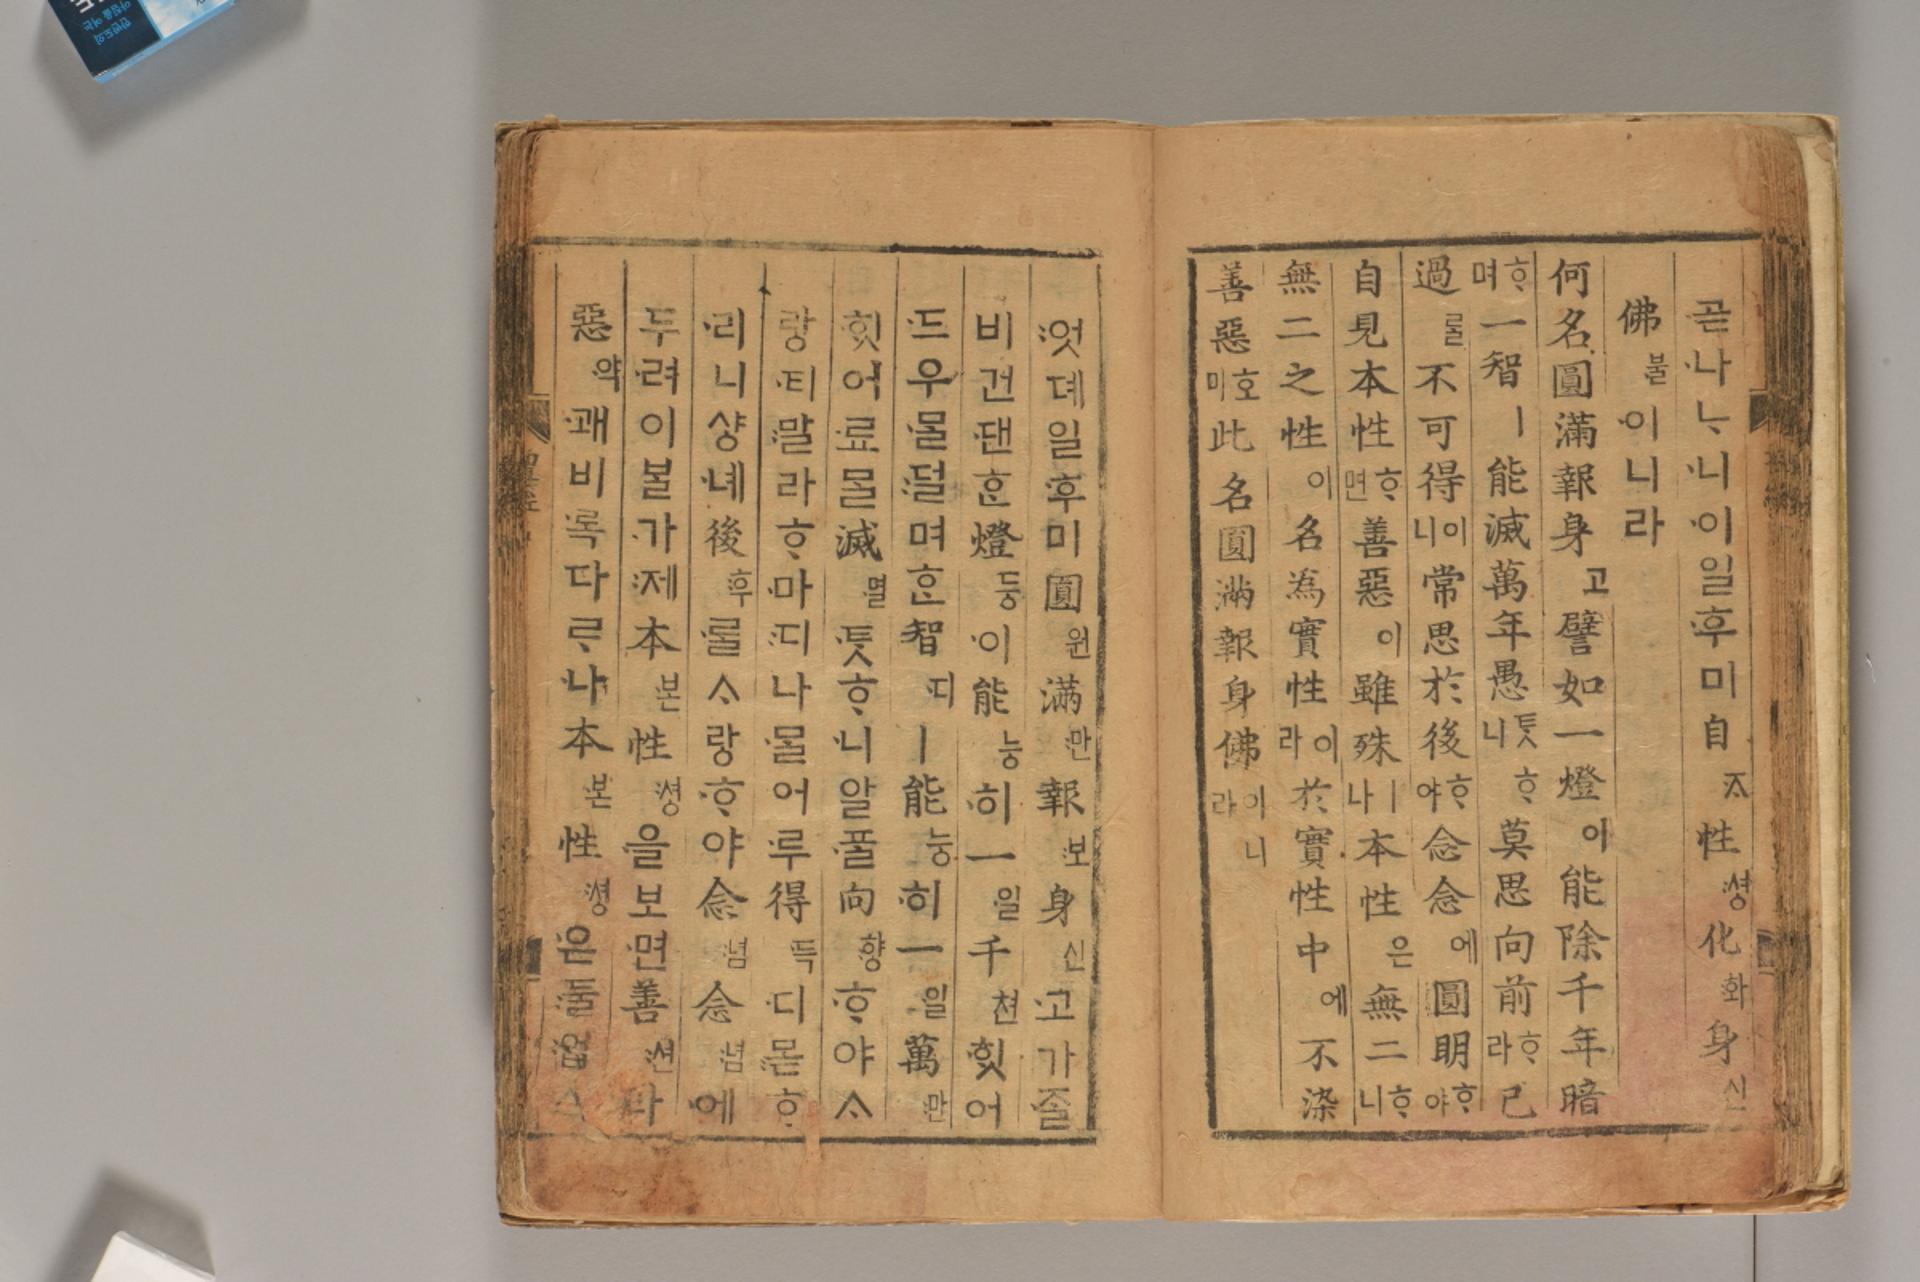 곧 나ᄂᆞ니 이 일후미 自ᄌᆞ性셩化화身신
佛불이니라
何名圓滿報身고 譬如一燈이 能除千年暗
ᄒᆞ며 一智ㅣ 能滅萬年愚ᄐᆞᆺᄒᆞ니 莫思向前ᄒᆞ라 已
過ᄅᆞᆯ 不可得이니 常思於後ᄒᆞ야 念念에 圓明ᄒᆞ야
自見本性ᄒᆞ면 善惡이 雖殊ㅣ나 本性은 無二ᄒᆞ니
無二之性이 名為實性이라 於實性中에 不染
善惡호미 此名圓滿報身佛이니라
엇뎨 일후미 圓원滿만報보身신고 가ᄌᆞᆯ
비건댄 ᄒᆞᆫ 燈등이 能능히 一일千쳔 ᄒᆡᆺ 어
드우믈 덜며 ᄒᆞᆫ 智디ㅣ 能능히 一일萬만
ᄒᆡᆺ 어료믈 滅멸ᄐᆞᆺ ᄒᆞ니 알ᄑᆞᆯ 向향ᄒᆞ야 ᄉᆞ
랑티 말라 ᄒᆞ마 디나ᄆᆞᆯ 어루 得득디 몯ᄒᆞ
리니 샹녜 後후ᄅᆞᆯ ᄉᆞ랑ᄒᆞ야 念념念념에
두려이 ᄇᆞᆯ가 제 本본性셩을 보면 善션 다
惡악괘 비록 다ᄅᆞ나 本본性셩은 둘 업스